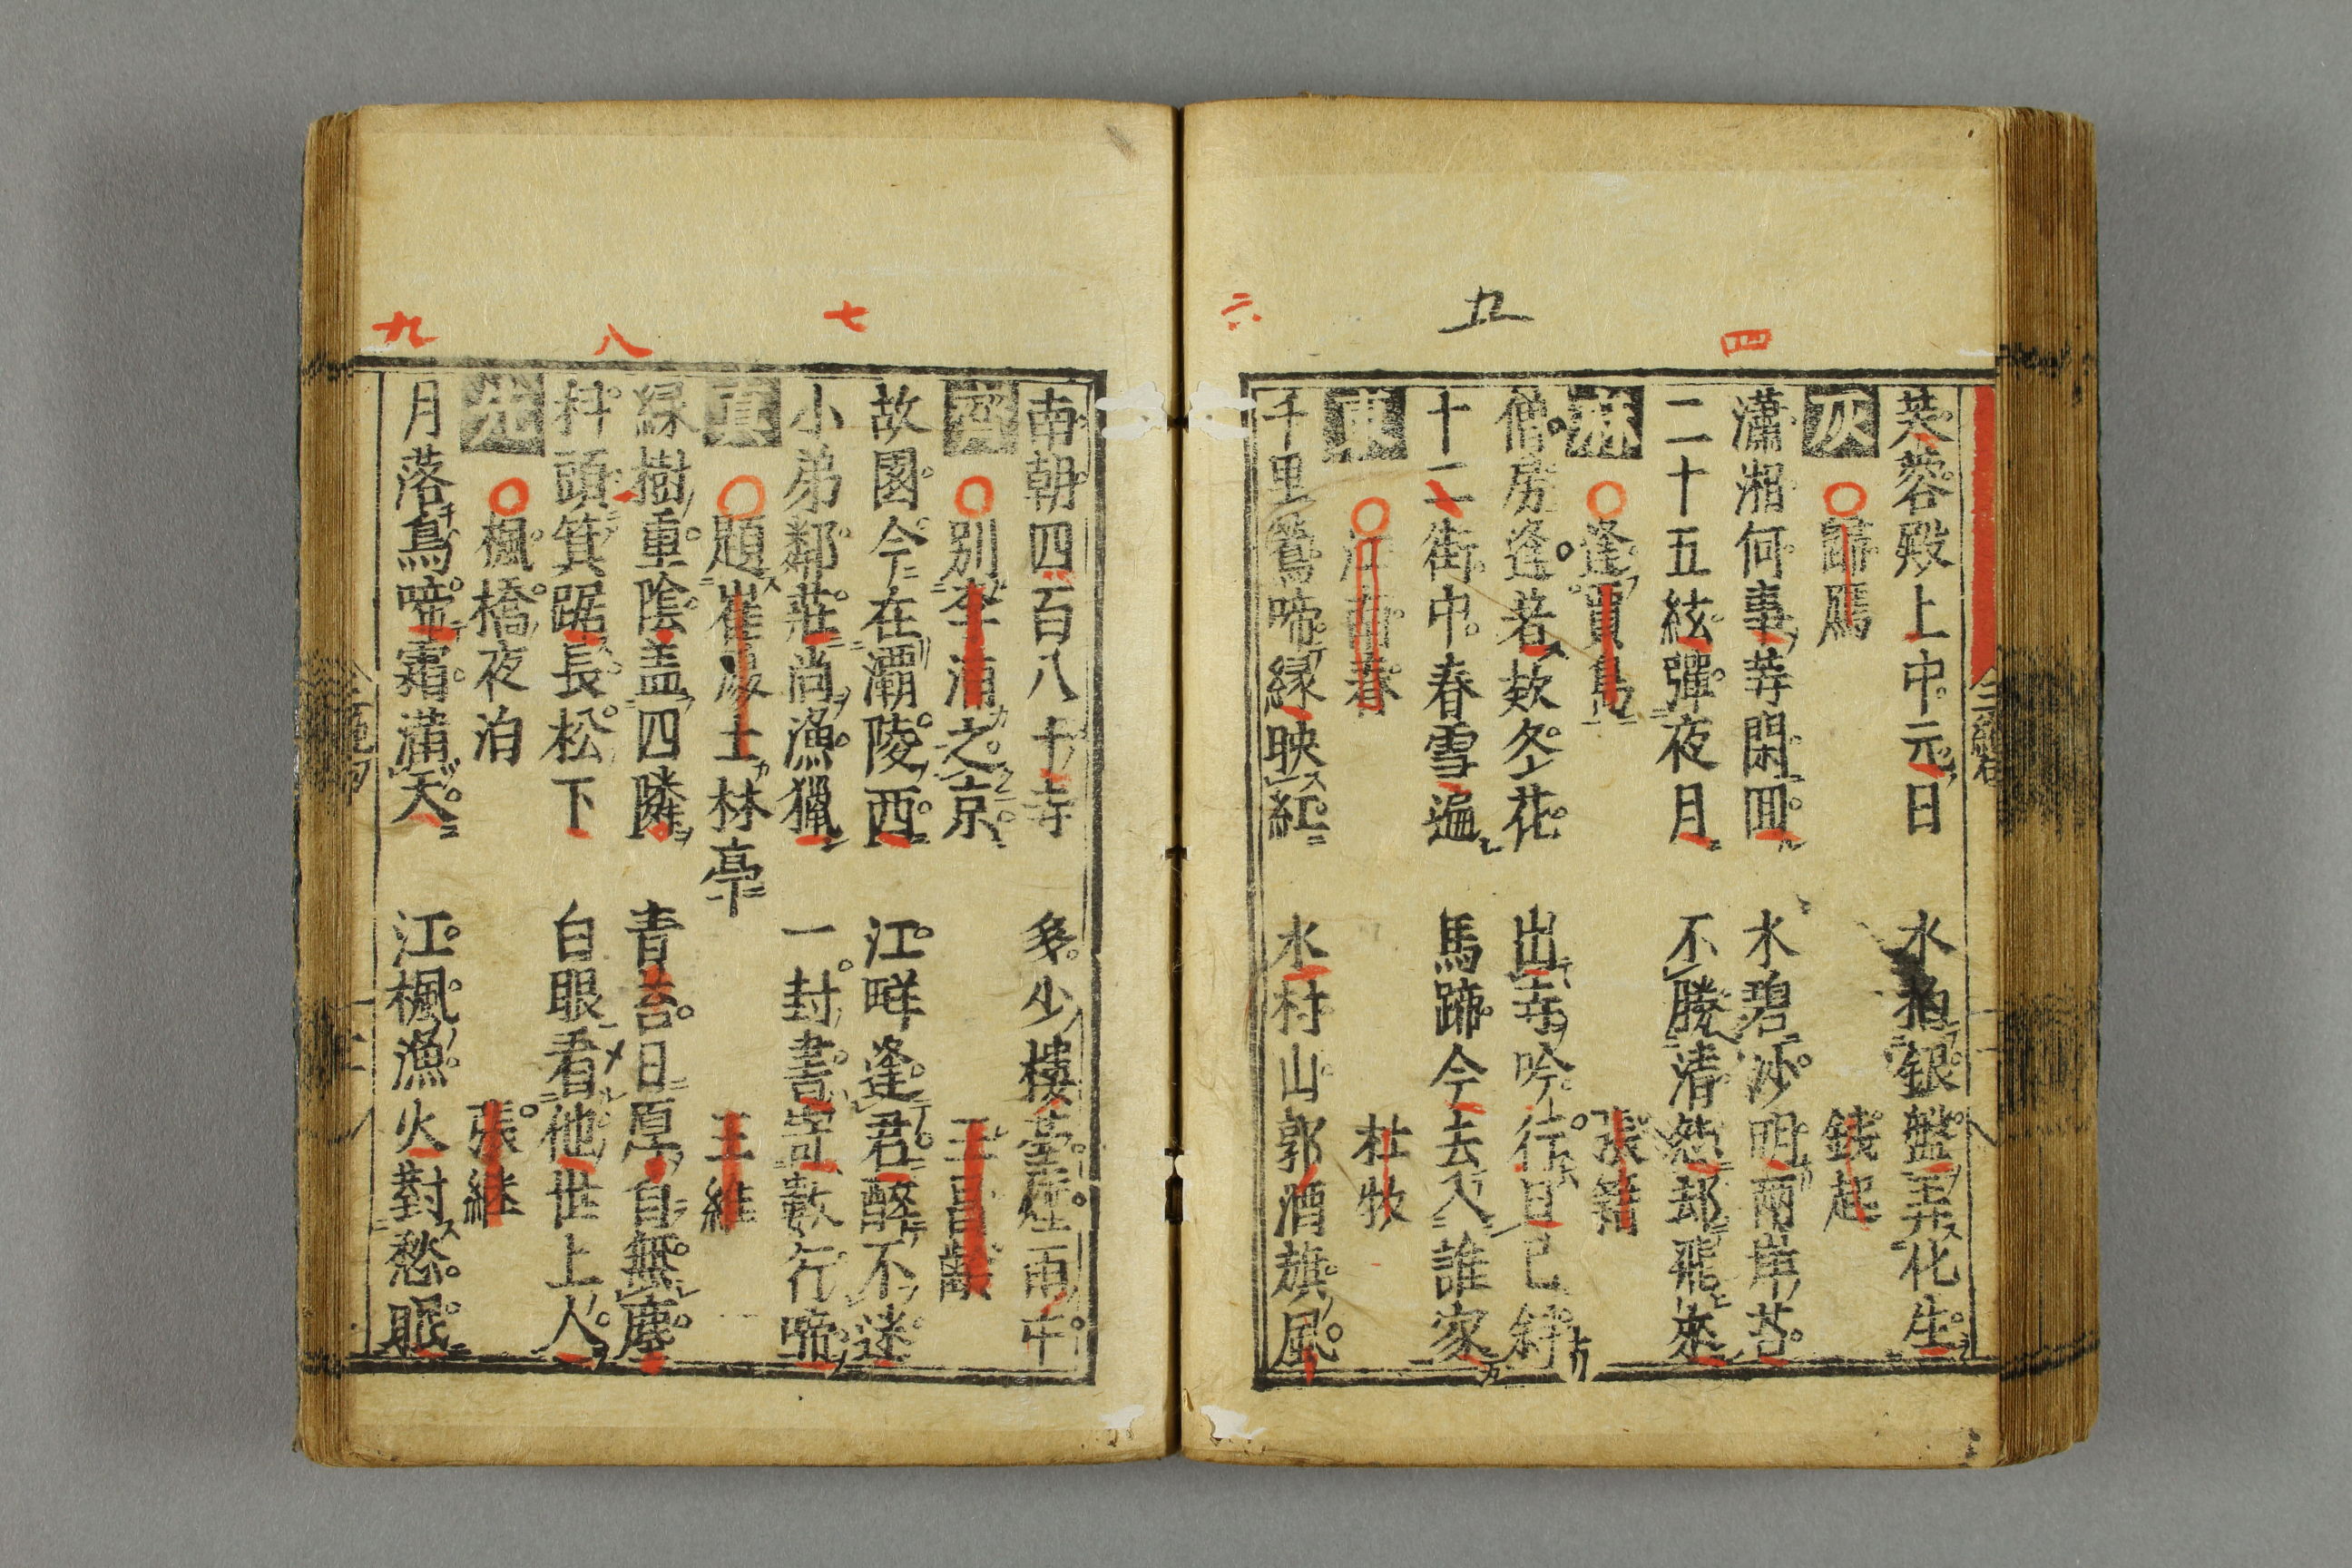 四
五
六
芙蓉殿上中元日　水拍銀盤弄化生
灰　歸鴈　錢起
瀟湘何事等閑囬　水碧沙明兩岸苔
二十五絃彈夜月　不勝清怨却飛來
麻　逢賈島　張籍
僧房逢着欵冬花　出寺吟行日已斜
十二街中春雪遍　馬蹄今去入誰家
東　江南春　杜牧
千里鶯啼緑映紅　水村山郭酒旗風
七
八
九
南朝四百八十寺　多少樓臺煙雨中
齊　別李浦之京　王昌齡
故園今在灞陵西　江畔逢君醉不迷
小弟鄰莊尚漁獵　一封書寄數行啼
真　題崔處士林亭　王維
緑樹重陰盖四隣　青苔日厚自無塵
科頭箕踞長松下　白眼看他世上人
先　楓橋夜泊　張継
月落烏啼霜滿天　江楓漁火對愁眠